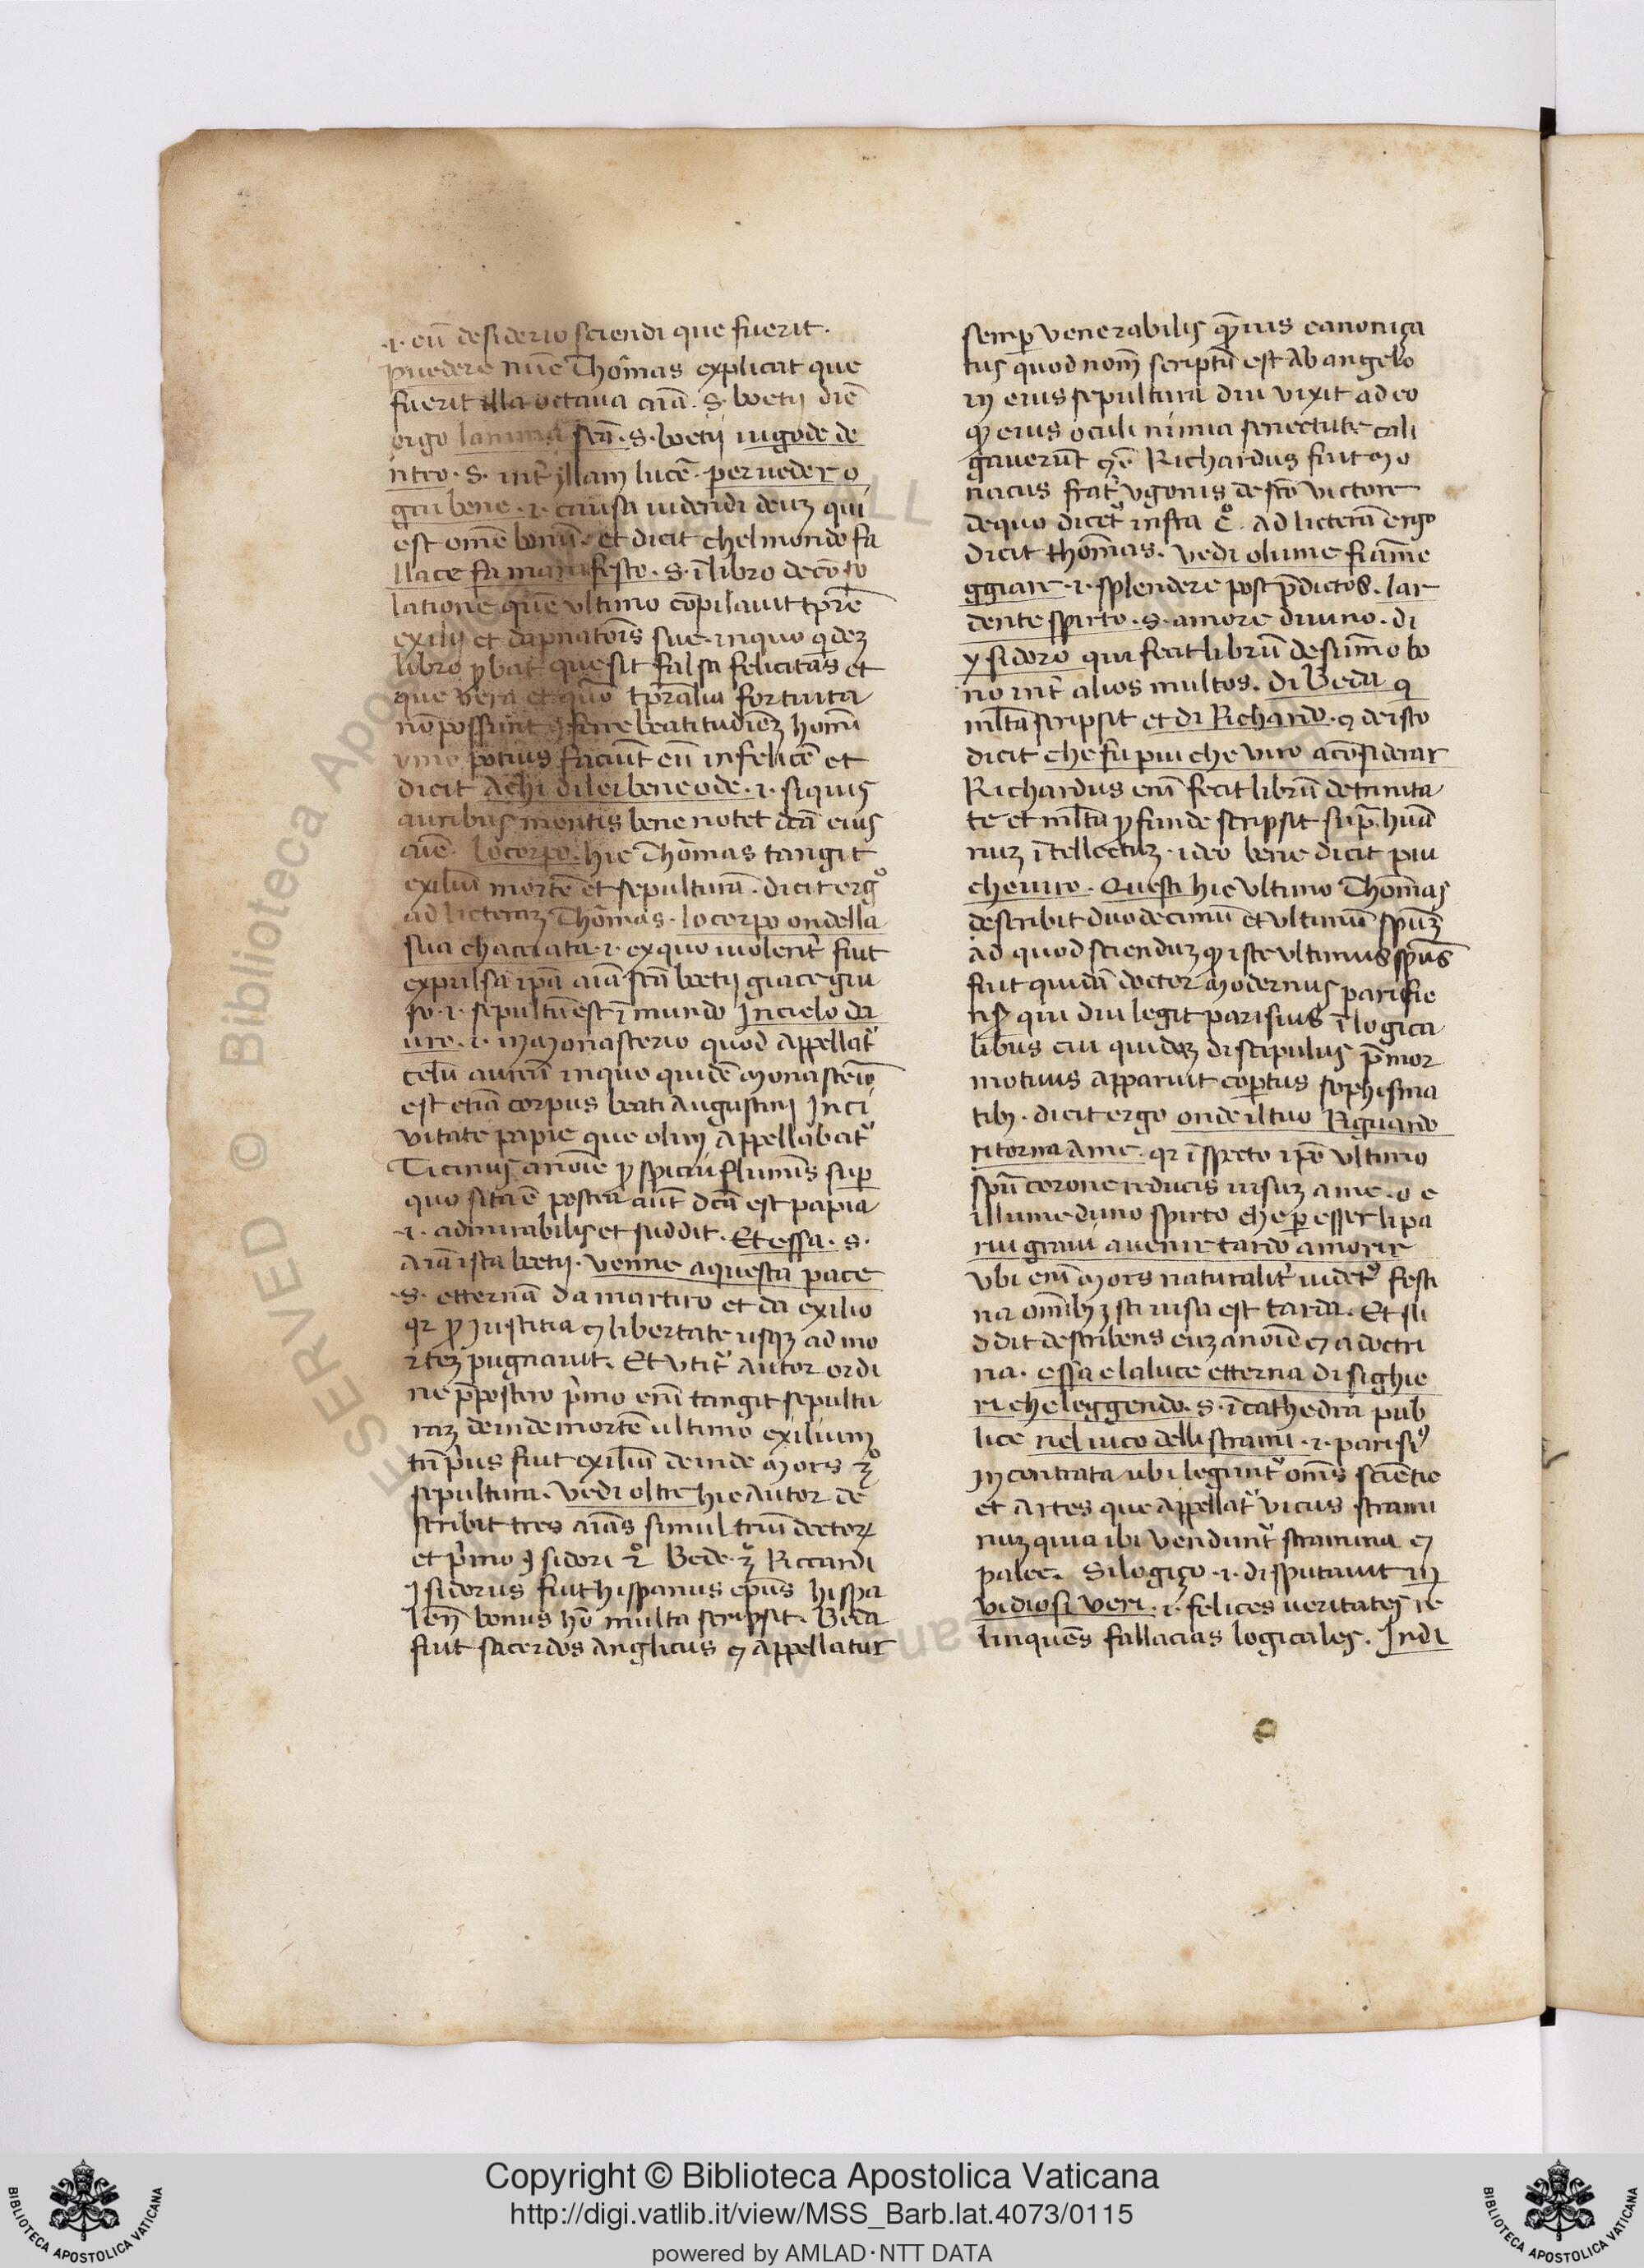 .i. cū desiderio sciendi que fuerit.
puedere nūc Thōmas explicat que
fuerit illa octaua aīā. s. boetij diē
ergo lanima sctā. s. boetij uigode de
ntro. s. int̄ yllam lucē. peruedero
gni bene .i. causa uidendi deuʒ qui
est omē bonū. et dicit chelmondo fa
llace fa manifesto. s. ī libro decōso
latione quē vltimo cōpilauit tp̄re
exilij et dāpnatoīs sue. inquo qͥdeʒ
libro ꝓbat que sit falsa felicitas et
que vera et quō tp̄ralia fortuita
nō possunt ꝯferre beatitudīeʒ homī
ymo potius faciūt eū infelicē et
dicit Achi dilei bene ode .i. siquis
auribus mentis bene notet dc̄ā eius
aīē. locorpo. hic Thōmas tangit
exiliū mortē et sepulturā. dicit ergͦ
ad licteraʒ Thōmas. lo corpo ondella
fua chacciata .i. exquo uiolent̄ fuit
expulsa ip̄ā aīā sc̄ā boetij giace giu
so .i. sepultū est ī mundo Incielo da
uro .i. in Monasterio quod appellat᷑
celū aurū inquo quidē Monasterio
est etiā corpus beati Augustini Inci
vitate papie que olim Appellabat᷑
Ticinus anoīe ꝓpicui fluminis suꝑ
quo sita ē postea aūt dc̄ā est papia
.i. admirabilis et suddit. Et essa. s.
Aīā ista boetij. venne aquesta pace
.s. etternā da martiro et da exilio
qꝛ ꝓ Iustitia ꝯ libertate usqʒ ad mo
rteʒ pugnauit. Et vtit᷑ Autor ordi
ne p̄postero p̄mo enī tangit sepultu
raʒ deinde mortē ultimo exilium
tn̄ p̄us fuit exiliū deinde Mors ʒͦ
sepultura. Vedi oltre hic Autor de
scribit tres aīas simul triū doctoꝝ
et p̄mo ysidori 2ͦ Bede. ʒͦ Riccardi
Isidorus fuit hispanus ep̄us hispa
lēn̄ bonus hō multa scripsit. Beda
fuit sacerdos Anglicus ꝯ Appellatur
semꝑ venerabilis qͣuius canoniça
tus quod nom̄ scriptū est Ab angelo
in eius sepultura diu vixit adeo
ꝙ eius oculi nimia senectute cali
gauerūt ꝯc̄ Richardus fuit Mo
nacus frat᷑ vgonis de sc̄o victore
dequo dicet᷑ infra c̊. Ad licterā ergo
dicit thōmas. vedi olume fiām̄e
ggiare .i. splendere post p̄dictos. lar
dente spirto. s. amore diuino. di
ysidoro qui fecit librū desūmo bo
no int᷑ alios multos. di Beda qͥ
mlt̄a scripsit et di Richardo. ꝯ deisto
dicit che fu piu che viro acōsiderar
Richardus enī fecit librū detrinita
te et mlt̄a ꝓfunde scripsit sup̄ hūā
nuʒ ītellectuʒ. ideo bene dicit piu
cheuiro. Questi hic vltimo Thōmas
describit duodecimū et vltimū spūʒ
ad quod sciendūʒ ꝙ iste vltimus spūs
fuit quidā doctor Modernus parisie
nsis qui diu legit parisius ī logica
libus cui quideʒ discipulus p̄mor
motuus apparuit coꝑtus sophisma
tibʒ. dicit ergo onde iltuo Riguardo
ritorna Ame. qꝛ īspecto ip̄o vltimo
spū corone reducis uisuʒ a me. o e
illume duno spirto che ꝑ esser lipa
rui graui auenir tardo amorir
vbi enī Mors naturalit᷑ uidet᷑ festi
na om̄ibʒ isti uisa est tarda. Et su
ddit describens euʒ anoīē ꝯ adoctri
na. essa elaluce etterna di sighie
ri che leggendo. s. ī cathedra pub
lice nel uico delli strami .i. parisiꝰ
In contrata ubi legunt᷑ om̄s sciētie
et Artes que Appellat᷑ vicus strami
nuʒ quia ibi vendunt᷑ stramina ꝯ
palee. Silogiço .i. disputauit in
vidiosi veri .i. felices ueritates re
linquēs fallacias logicales. Indi
Copyright © Biblioteca Apostolica Vaticana
http://digi.vatlib.it/view/MSS_Barb.lat.4073/0115
powered by AMLAD·NTT DATA
BIBLIOTECA APOSTOLICA VATICANA
BIBLIOTECA APOSTOLICA VATICANA